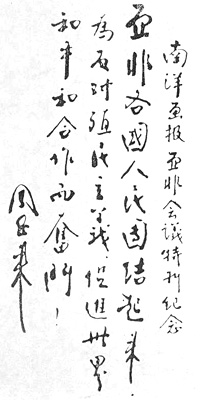 南洋画报亚非会議特刊纪念
亞非各國人民团结起来，
为反对殖民主义，促進世界
和平和合作而奮鬥！
周恩来